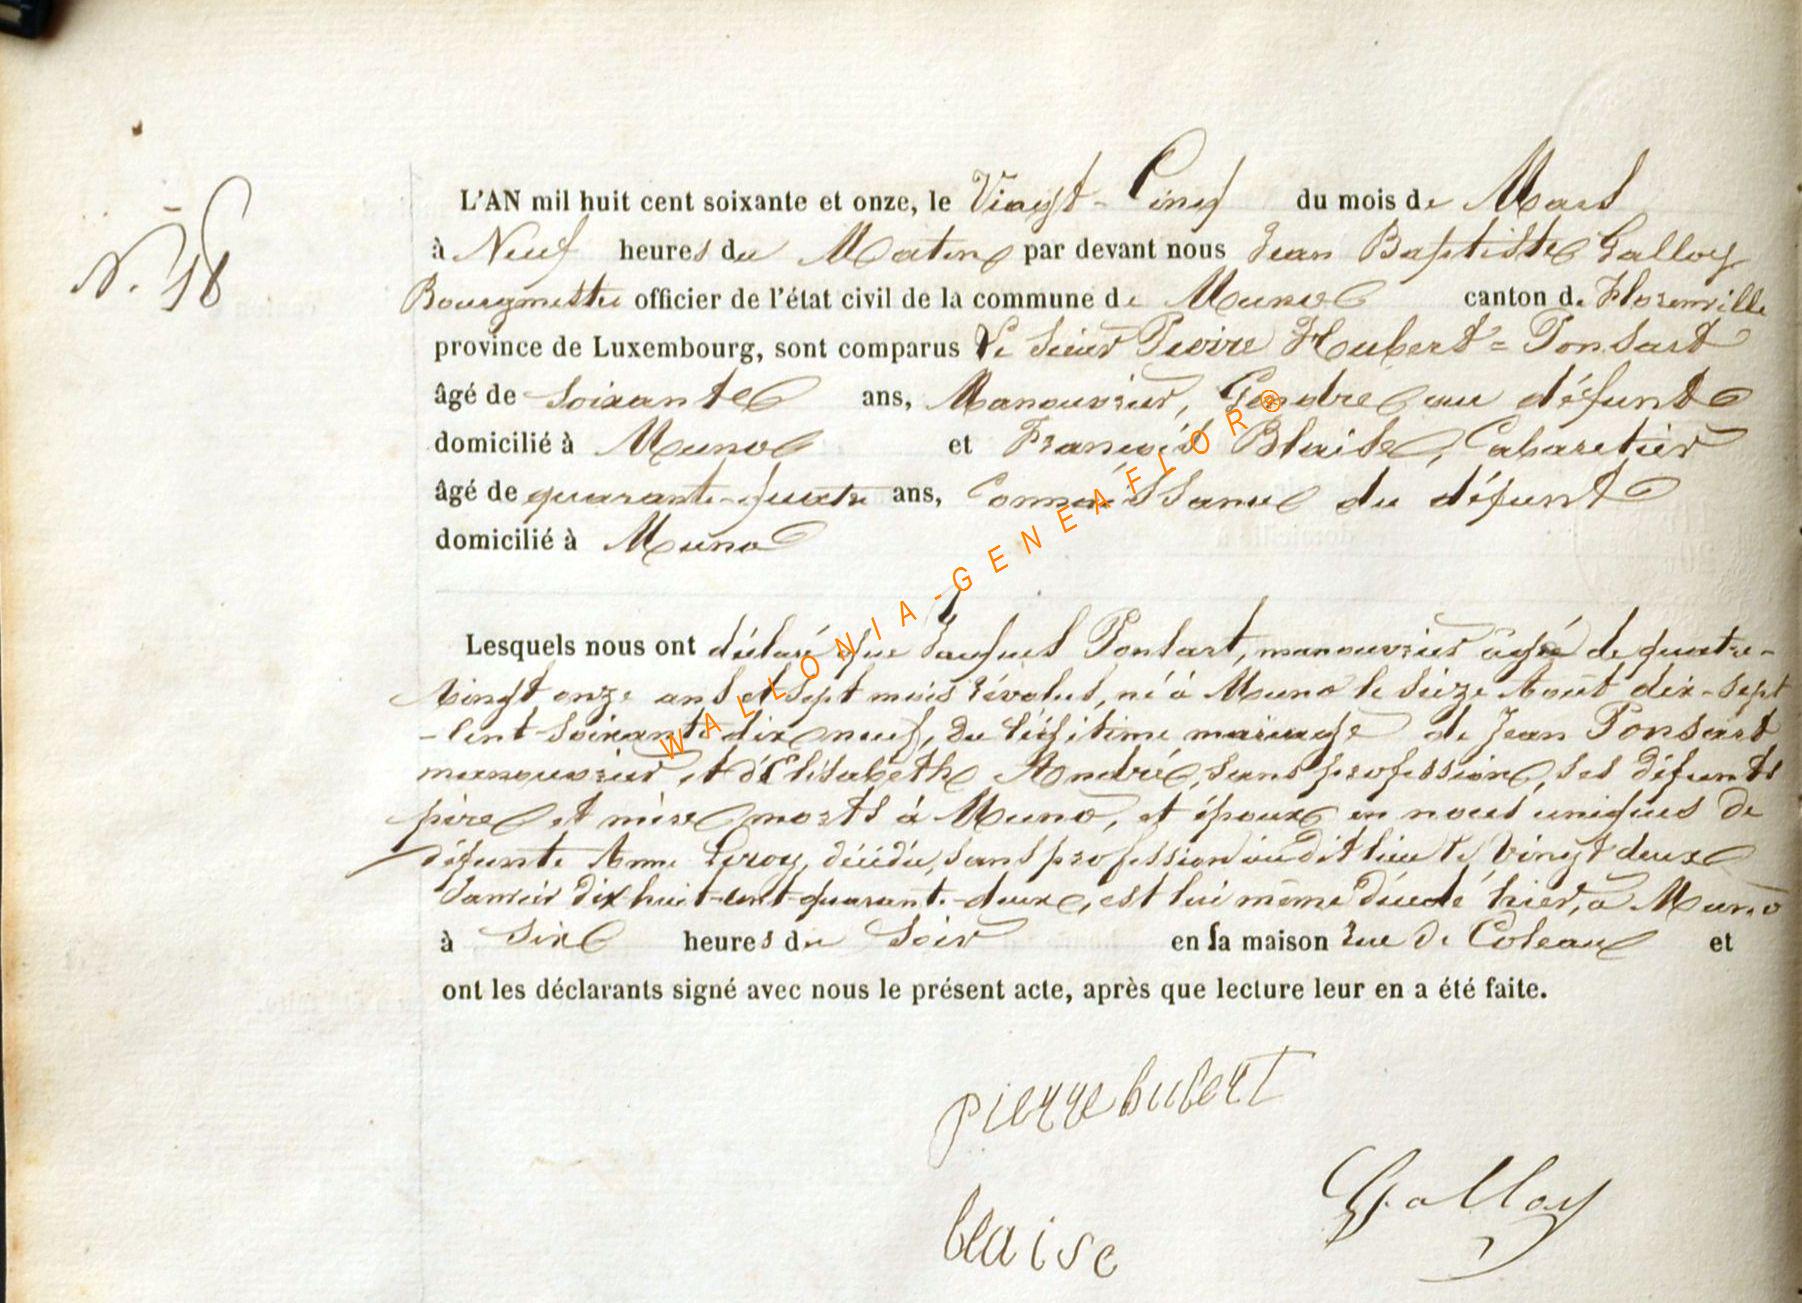 N. 18
L'AN mil huit cent soixante et onze, le Vingt-Cinq du mois de Mars
à Neuf heures du Matin par devant nous Jean Baptiste Galloy
Bourgmestre officier de l'état civil de la commune de Muno canton de Florenville
province de Luxembourg, sont comparus Le Sieur Pierre Hubert=Ponsart
âgé de soixante ans, Manouvrier, Gendre au défunt
domicilié à Muno et François Blaise, Cabaretier
âgé de quarante-quatre ans, Connaissance du défunt
domicilié à Muno
Lesquels nous ont déclaré que Jacques Ponsart, manouvrier âgé de quatre-
vingt onze ans et sept mois révolus, né à Muno le seize Août dix-sept
-cent soixante dix neuf, du légitime mariage de Jean Ponsart
manouvrier et d'Elisabeth André, sans profession, ses défunts
père et mère morts à Muno, et époux en noces uniques de
défunte Anne Leroy, décédée, sans profession audit lieu le vingt deux
Janvier dix huit-cent-quarant.-deux, est lui même décédé hier, à Muno
à six heures du soir en sa maison rue de Coleaux et
ont les déclarants signé avec nous le présent acte, après que lecture leur en a été faite.
pierre hubert
Galloy
blaise
WALLONIA-GENEAFLOR®